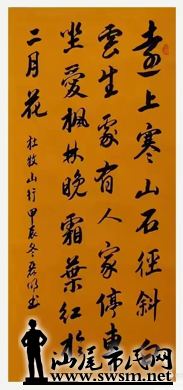 遠上寒山石徑斜白
雲生處有人家停車
坐愛楓林晚霜葉紅於
二月花
杜牧山行甲辰冬書
汕尾市民网
www.swsm.net